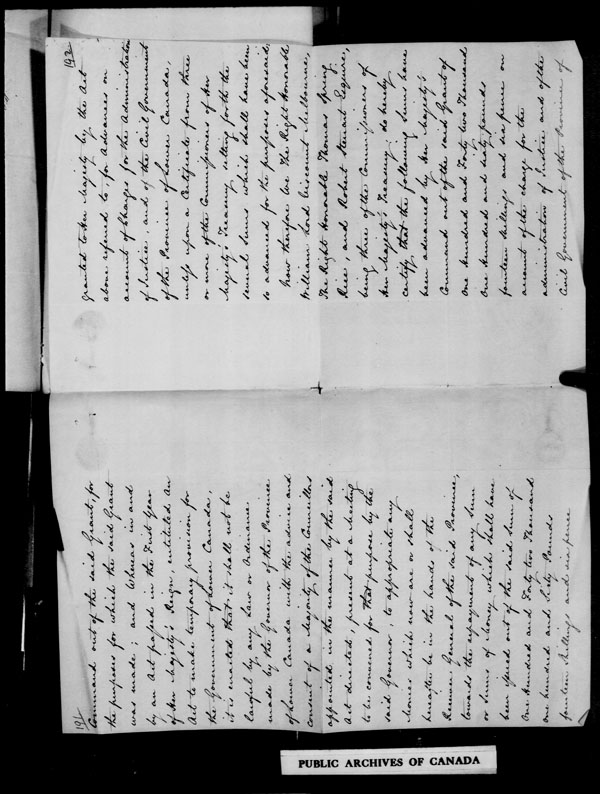 191
Command out of the said Grant, for
the purposes for which the said Grant
was made; and Whereas in and
by an Act passed in the First Year
of Her Majesty's Reign, entituled An
Act to make temporary provision for
the Government of Lower Canada,
it is enacted that it shall not be
lawful by any Law or Ordinance
made by the Governor of the Province
of Lower Canada with the advice and
consent of a Majority of the Councillors
appointed in the manner by the said
Act directed, present at a Meeting
to be convened for that purpose by the
said Governor, to appropriate any
Monies which now are or shall
hereafter be in the hands of the
Receiver General of the said Province,
towards the repayment of any Sum
or Sums of Money which shall have
been issued out of the said Sum of
One Hundred and Forty two Thousand
One hundred and Sixty Pounds
fourteen Shillings and six pence
192
granted to Her Majesty by the Act
above referred to, for Advances on
account of Charges for the Administration
of Justice, and of the Civil Government
of the Province of Lower Canada,
unless upon a Certificate from three
or more of the Commissioners of Her
Majesty's Treasury setting forth the
several Sums which shall have been
so advanced for the purposes aforesaid.
Now therefore We The Right Honorable
William Lord Viscount Melbourne,
The Right Honorable Thomas Spring
Rice, and Robert Steuart Esquire,
being three of the Commissioners of
Her Majesty's Treasury do hereby
certify that the following Sums have
been advanced by Her Majesty's
Command out of the said Grant of
One Hundred and Forty two Thousand
One Hundred and Sixty pounds
fourteen shillings and six pence on
account of the charge for the
administration of Justice and of the
Civil Government of the Province of
PUBLIC ARCHIVES OF CANADA